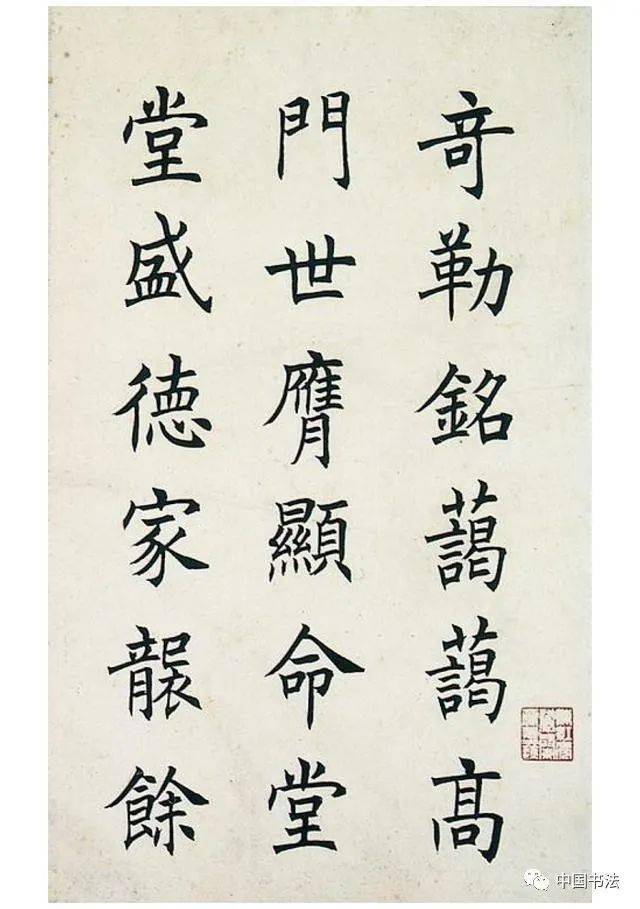 奇勒銘藹藹高
門世膺顯命堂
堂盛德家襲餘
中国书法